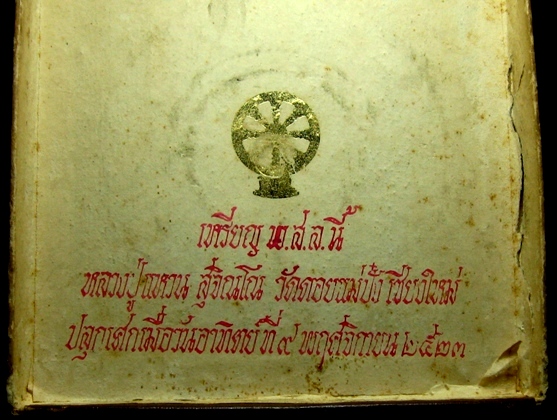 เหรียญ พ.ส.ล.นี้
หลวงปู่แหวน สุจิณโณ วัดดอยแม่ปั๋ง เชียงใหม่
ปลุกเสกเมื่อวันอาทิตย์ที่ ๙ พฤศจิกายน ๒๕๒๓